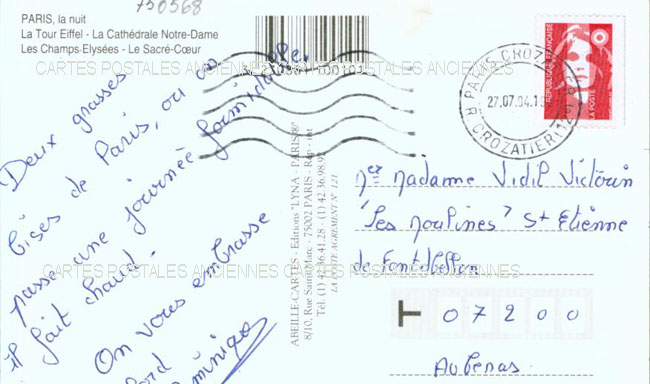 750568
PARIS, la nuit
La Tour Eiffel - La Cathédrale Notre-Dame
Les Champs-Elysées - Le Sacré-Cœur
CARTES POSTALES ANCIENNES
Deux grosses
bises de Paris, où on
passe une journée formidable.
il fait chaud.
On vous embrasse
ABEILLE-CARTES - Editions "LYNA - PARIS"®
8/10, Rue Saint-Marc - 75002 PARIS - Rep - tot
Tél. (1) 42.36.41.28 - (1) 42.36.98.9
LA POSTE AGREMENT N° 121
RÉPUBLIQUE FRANÇAISE
LA POSTE
PARIS CROZATIER
27.07.94
R. CROZATIER
Mer Madame Vidil Victorin
"Les Moulines" St Etienne
de Fontbellon
07200
Aubenas
CARTES POSTALES ANCIENNES